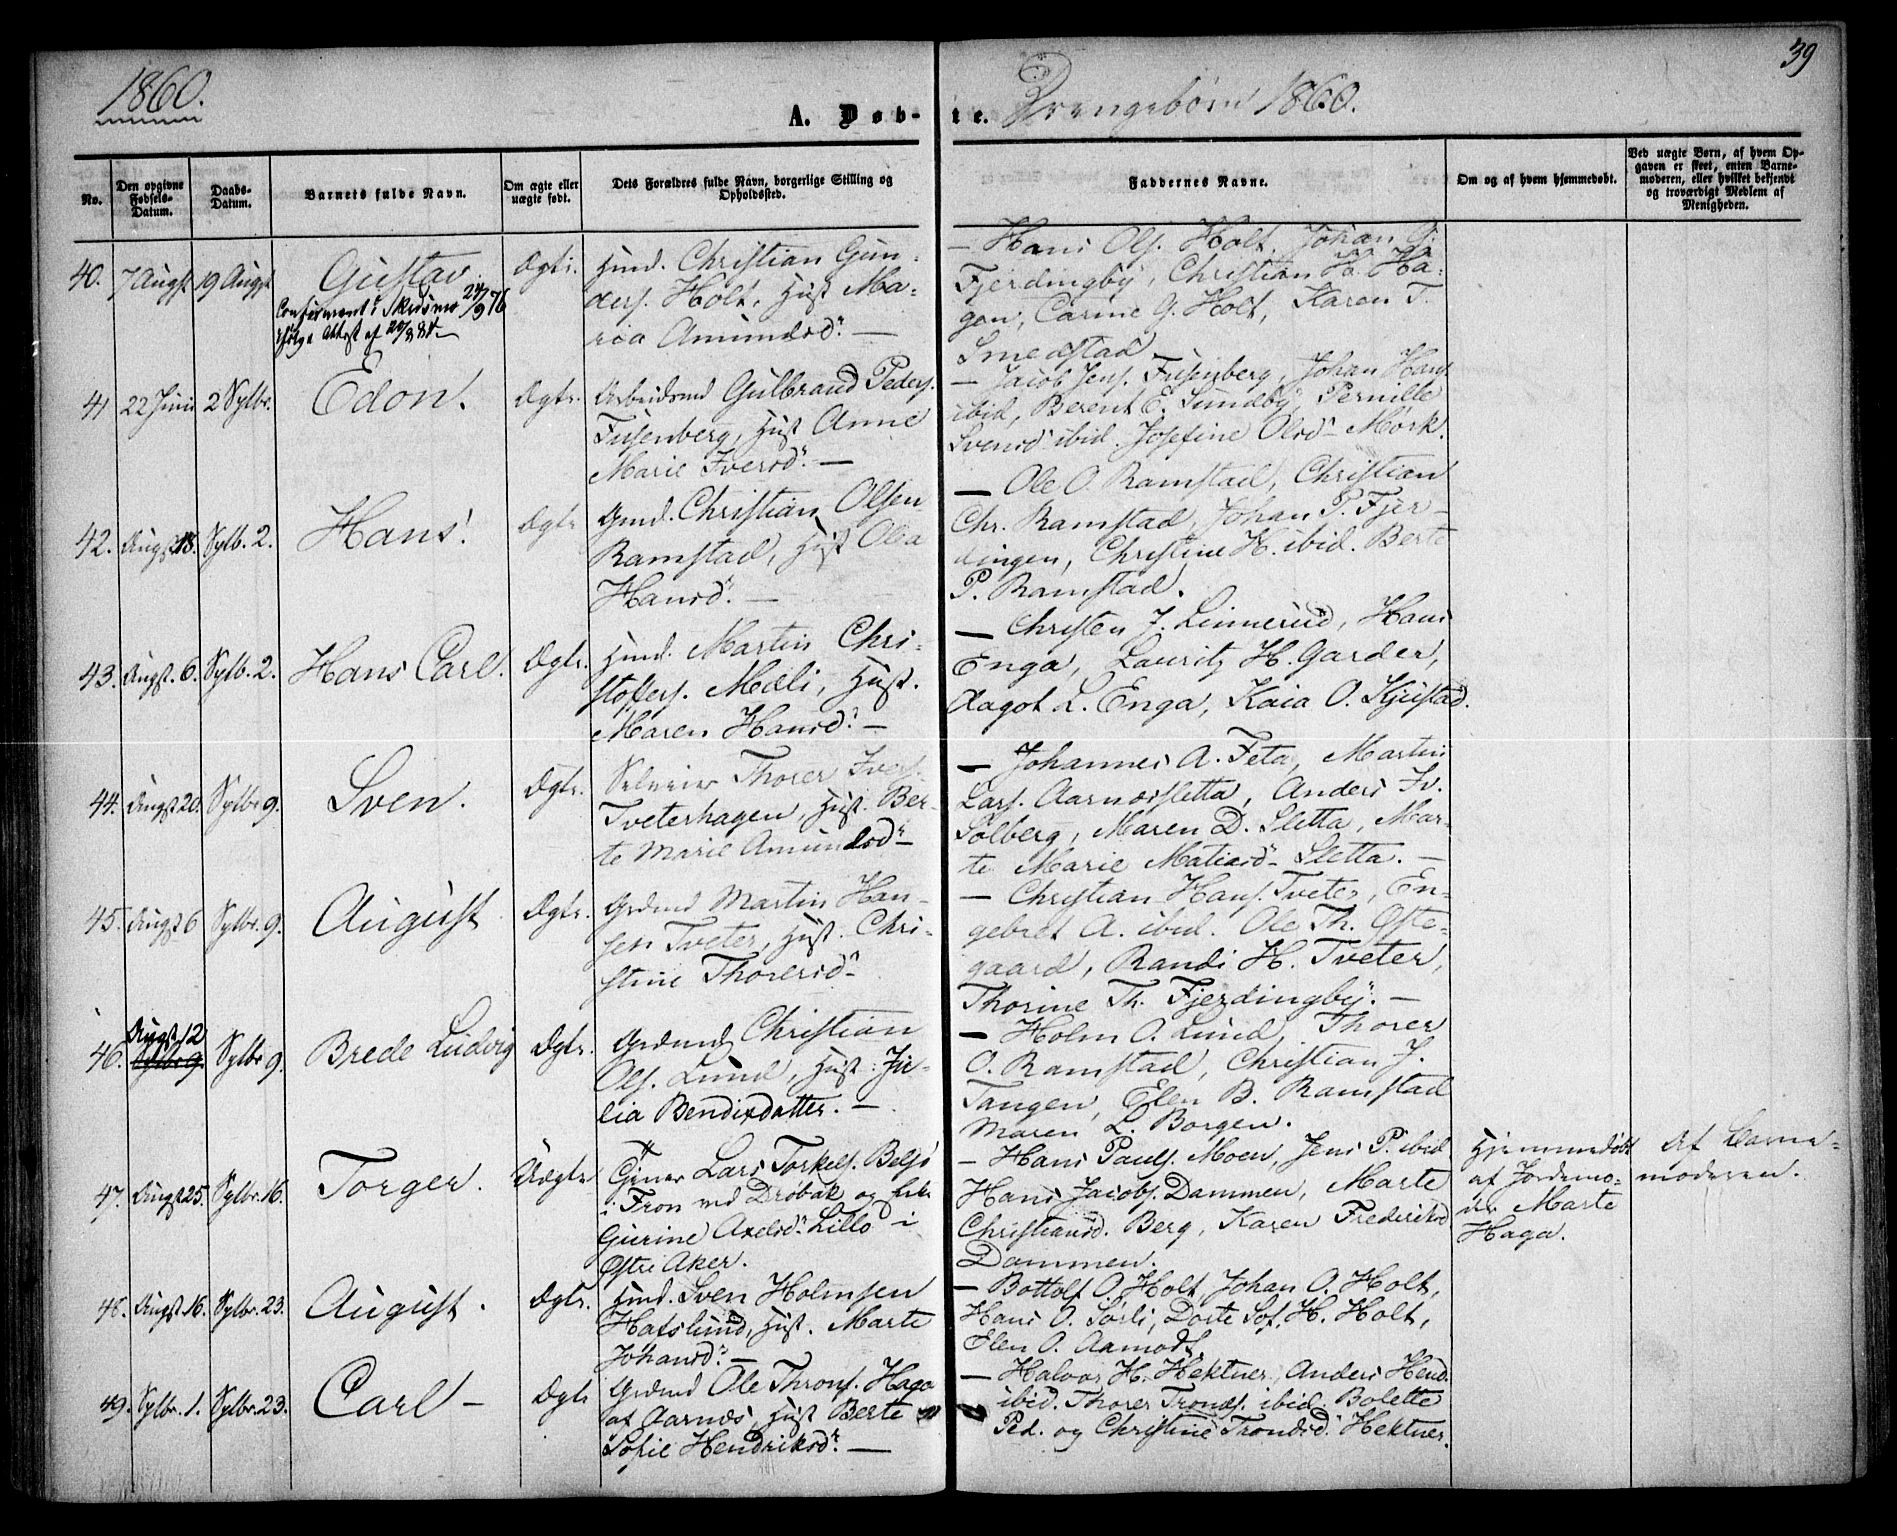 1860.
A. Døbte. Drengebørn 1860.
39
No.
Den opgivne Fødsels-Datum.
Daabs-Datum.
Barnets fulde Navn.
Om ægte eller uægte født.
Dets Forældres fulde Navn, borgerlige Stilling og Opholdssted.
Faddernes Navne.
Om og af hvem hjemmedøbt.
Ved uægte Børn, af hvem Opgaven er skeet, enten Barnemoderen, eller hvilket bekjendt og troværdigt Medlem af Menigheden.
40. 7 Augst 19 Augst Gustav. Ægte.
Confirmeret i 24/9 76
ifølge Attest af
Husmd. Christian Gun-
ders. Holt, Hust. Ma-
ria Amundsd. —
— Hans Ols. Holt, Johan
Fjerdingby, Christian H. Ha-
gen, Carine G. Holt, Karen T.
Smedstad
41 22 Juni 2 Sptbr. Edon. Ægte.
Arbeidsmd Gulbrand Peders.
Fusenberg, Hust Anne
Marie Iversd. —
— Jacob Jens. Fusenberg, Johan Hans.
ibid, Berent E. Sundby, Pernille
Svensd ibid. Josefine Olsd. Mørk.
42. Augst 18. Sptb. 2. Hans. Ægte
Gmd. Christian Olsen
Ramstad, Hust Olea
Hansd. —
— Ole O. Ramstad, Christian
Chr. Ramstad, Johan P. Fjer-
dingen, Christine H. ibid. Berte
P. Ramstad.
43. Augst. 6. Sptb. 2. Hans Carl. Ægte.
Husmd. Martin Chri-
stoffers. Mæli, Hust.
Maren Hansd. —
— Christen J. Linnerud, Hans
Enga, Lauritz H. Garder,
Aagot L. Enga, Kaia O. Kjustad.
44. Augst 20. Sptbr 9. Sven. Ægte.
Selveier Thorer Ivers.
Tveterhagen, Hust. Ber-
te Marie Amundsd —
— Johannes A. Feta, Martin
Lars. Aarnæssletta, Anders Iv.
Solberg, Maren D. Sletta, Mar-
te Marie Matiasd. Sletta. —
45. Augst 6 Sptbr. 9. August Ægte.
Grdmd Martin Han-
sen Tveter, Hust. Chri-
stine Thoresd.
— Christian Hans. Tveter, En-
gebret A. ibid. Ole Th. Øste-
gaard, Randi H. Tveter,
Thorine Th. Fjerdingby. —
46. Augst 12 Sptbr 9. Sptbr 9. Brede Ludvig Ægte.
Grdmd Christian
Ols. Lund, Hust: Ju-
lia Bendixdatter. —
— Holm O. Lund, Thorer
O. Ramstad, Christian J.
Tangen, Elen B. Ramstad
Maren L. Borgen.
47. Augst 25. Sptbr. 16. Torger. Uægte
Lars Torkels. Belsjø
i Fron ved Drøbak og
Gurine Axelsd. Lillo i
Østre Aker.
— Hans Pauls. Moen, Jens P. ibid
Hans Jacobs. Dammen, Marte
Christiansd. Berg, Karen Frederiksd
Dammen.
Hjemmedøbt
af Jordemo-
der Marte
Haga.
Af Barne-
moderen.
48. Augst. 16. Sptbr. 23. August. Ægte.
Husmd. Sven Holmsen
Hafslund, Hust. Marte
Johansd. —
— Bottolf O. Holt, Johan O. Holt,
Hans O. Sørli, Dorte Sof. H. Holt,
Elen O. Aamodt.
49. Sptbr. 1. Sptbr. 23. Carl — Ægte
Grdmd Ole Throns. Haga
af Aarnæs, Hust Berte
Sofie Hendriksd. —
— Halvor H. Hektner, Anders Hend.
ibid. Thorer Tronds. ibid. Bolette
Ped. og Christine Trondsd. Hektner.